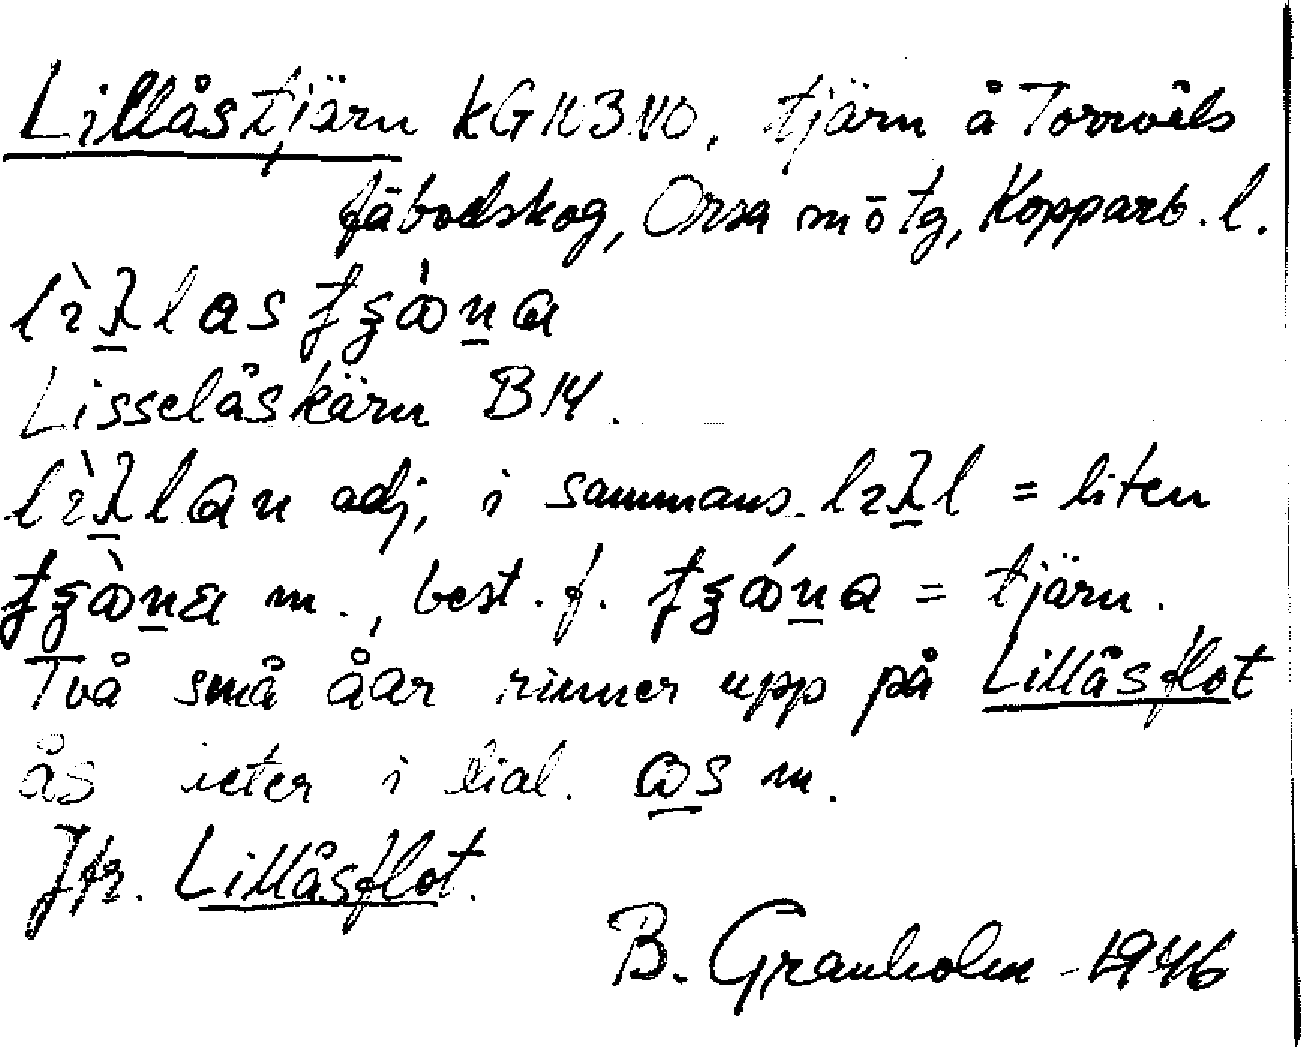 Lillåstjärn KG113110, tjärn å Torrvåls
fäbodskog, Orsa m o tg, Kopparb. l.
lɪ̀λ̱las ʄʒǻn̲a
Lisselåskärn B14.
lɪ̀λ̱lan adj, i sammans. lɪλ̱l = liten
m., best. f. = tjärn.
Två små åar rinner upp på Lillåsflot
ås i dial. m.
Jfr. Lillåsflot.
B. Granholm 1946